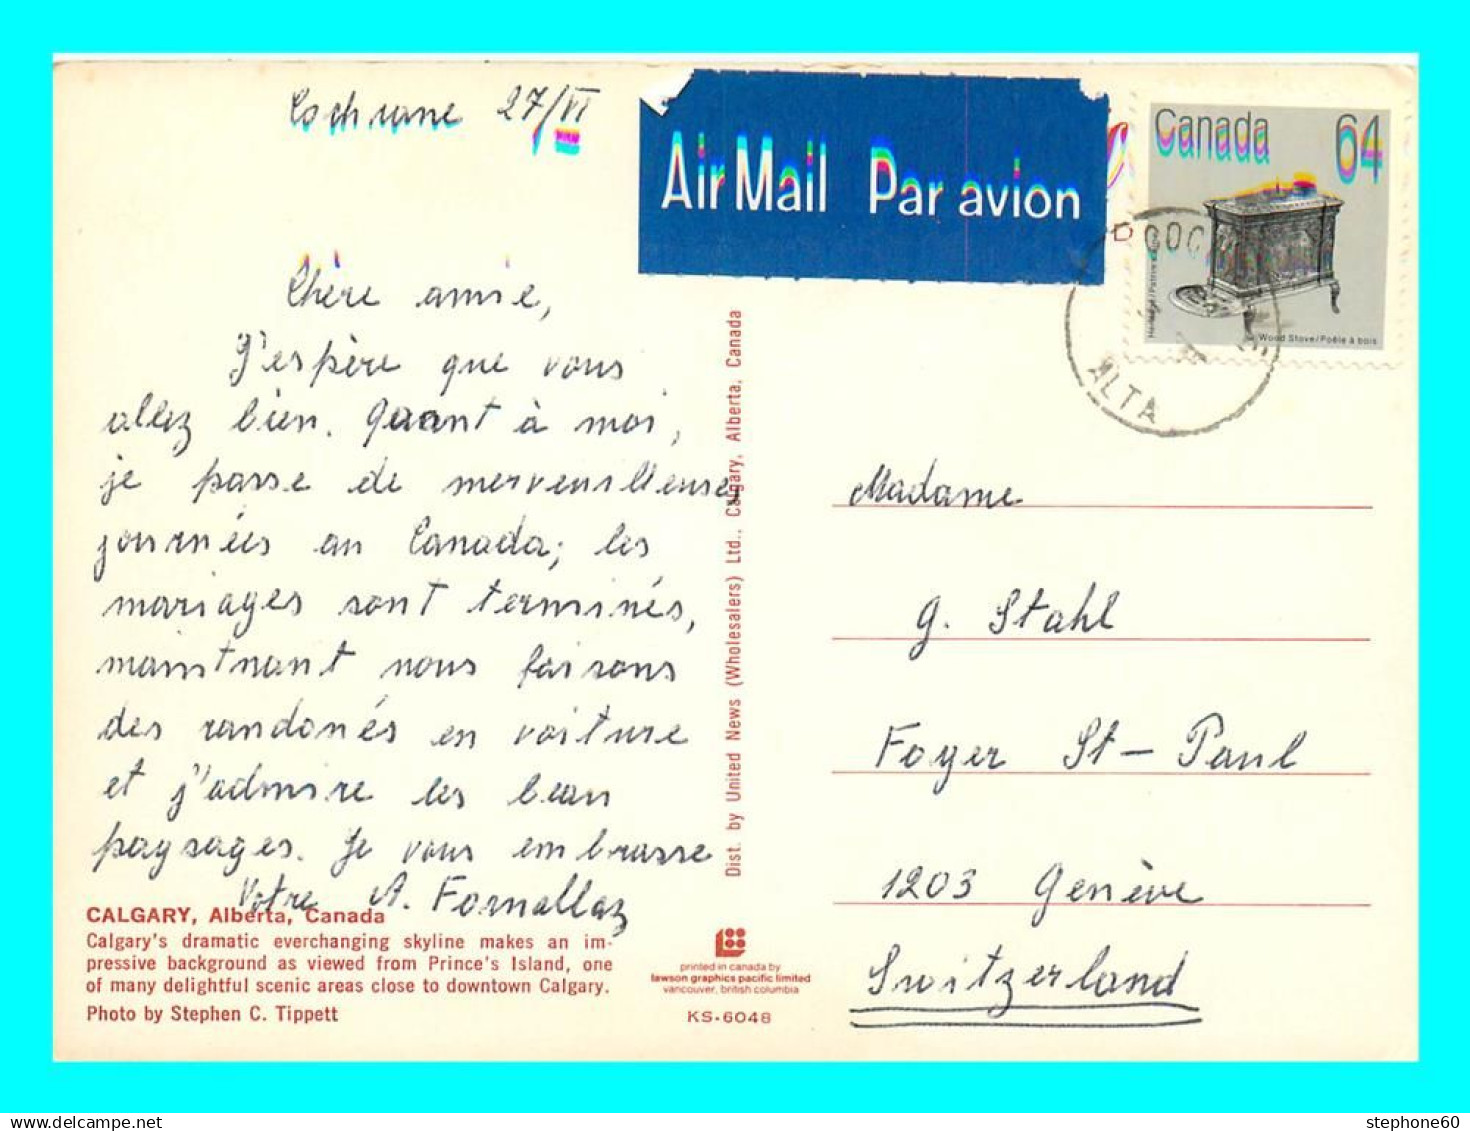 Cochrane 27/VI
Air Mail Par avion
Canada 64
Heritage/Patrimoine
Wood Stove/Poêle à bois
ALTA
Chère amie,
J'espère que vous
allez bien. Quant à moi,
je passe de merveilleuses
journées au Canada; les
mariages sont terminés,
maintnant nous faisons
des randonés en voiture
et j'admire les beau
paysages. Je vous embrasse
Votre A. Fornallaz
CALGARY, Alberta, Canada
Calgary's dramatic everchanging skyline makes an im-
pressive background as viewed from Prince's Island, one
of many delightful scenic areas close to downtown Calgary.
Photo by Stephen C. Tippett
Dist. by United News (Wholesalers) Ltd., Calgary, Alberta, Canada
printed in canada by
lawson graphics pacific limited
vancouver, british columbia
KS-6048
Madame
G. Stahl
Foyer St-Paul
1203 Genève
Switzerland
stephone60